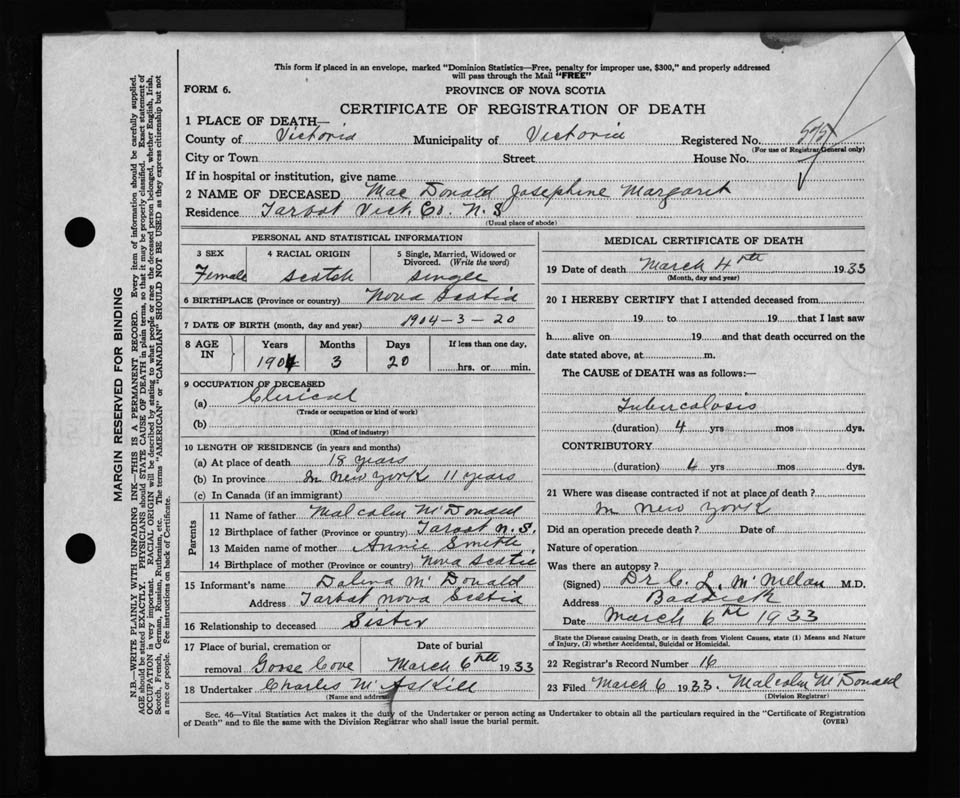 This form if placed in an envelope, marked "Dominion Statistics—Free, penalty for improper use, $300," and properly addressed
will pass through the Mail "FREE"
FORM 6.
PROVINCE OF NOVA SCOTIA
CERTIFICATE OF REGISTRATION OF DEATH
1 PLACE OF DEATH—
County of Victoria Municipality of Victoria Registered No.
(For use of Registrar General only)
City or Town Street House No.
If in hospital or institution, give name
2 NAME OF DECEASED Mac Donald Josephine Margaret
Residence Tarbot Vict. Co. N. S
(Usual place of abode)
PERSONAL AND STATISTICAL INFORMATION
3 SEX 4 RACIAL ORIGIN 5 Single, Married, Widowed or
Divorced. (Write the word)
Female Scotch Single
6 BIRTHPLACE (Province or country) Nova Scotia
7 DATE OF BIRTH (month, day and year) 1904-3-20
8 AGE IN Years Months Days If less than one day,
1904 3 20 hrs. or min.
9 OCCUPATION OF DECEASED
(a) Clerical
(Trade or occupation or kind of work)
(b)
(Kind of industry)
10 LENGTH OF RESIDENCE (in years and months)
(a) At place of death 18 years
(b) In province In New York 11 years
(c) In Canada (if an immigrant)
Parents
11 Name of father Malcolm McDonald
12 Birthplace of father (Province or country) Tarbot N.S.
13 Maiden name of mother Annie Smith
14 Birthplace of mother (Province or country) Nova Scotia
15 Informant's name Dalena McDonald
Address Tarbot Nova Scotia
16 Relationship to deceased Sister
17 Place of burial, cremation or Date of burial
removal Goose Cove March 6th 1933
18 Undertaker Charles McAskill
(Name and address)
MEDICAL CERTIFICATE OF DEATH
19 Date of death March 4th 1933
(Month, day and year)
20 I HEREBY CERTIFY that I attended deceased from
19 to 19 that I last saw
h alive on 19 and that death occurred on the
date stated above, at m.
The CAUSE of DEATH was as follows:—
Tubercolosis
(duration) 4 yrs mos dys.
CONTRIBUTORY
(duration) 4 yrs mos dys.
21 Where was disease contracted if not at place of death?
In New York
Did an operation precede death? Date of
Nature of operation
Was there an autopsy?
(Signed) Dr C. L. McMelan M.D.
Address Baddeck
Date March 6th 1933
State the Disease causing Death, or in death from Violent Causes, state (1) Means and Nature
of Injury, (2) whether Accidental, Suicidal or Homicidal.
22 Registrar's Record Number 16
23 Filed March 6 1933. Malcolm McDonald
(Division Registrar)
Sec. 46—Vital Statistics Act makes it the duty of the Undertaker or person acting as Undertaker to obtain all the particulars required in the "Certificate of Registration
of Death" and to file the same with the Division Registrar who shall issue the burial permit.
(OVER)
MARGIN RESERVED FOR BINDING
N.B.—WRITE PLAINLY WITH UNFADING INK—THIS IS A PERMANENT RECORD. Every item of information should be carefully supplied.
AGE should be stated EXACTLY. PHYSICIANS should STATE CAUSE OF DEATH in plain terms, so that it may be properly classified. Exact statement of
OCCUPATION is very important. RACIAL ORIGIN will be described by stating to what people or race the deceased person belonged, whether English, Irish,
Scotch, French, German, Russian, Ruthenian, etc. The terms "AMERICAN" or "CANADIAN" SHOULD NOT BE USED as they express citizenship but not
a race or people. See instructions on back of Certificate.